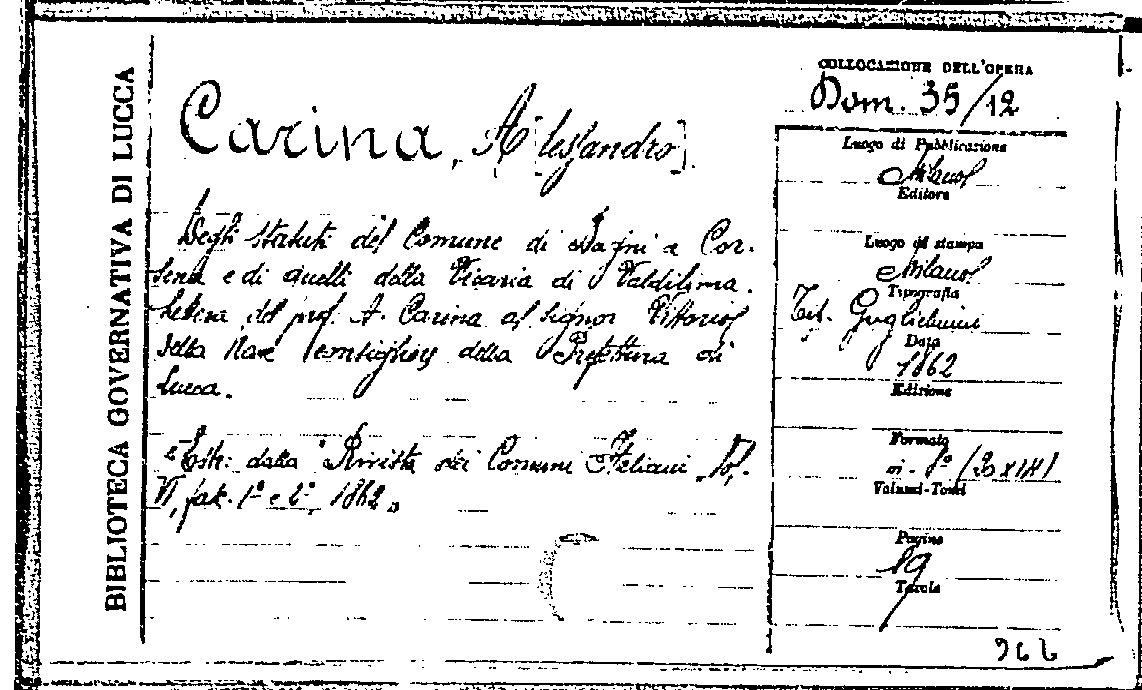 BIBLIOTECA GOVERNATIVA DI LUCCA
Carina, A[lessandro].
Degli statuti del Comune di Bagni a Cor-
sena e di quelli della Vicaria di Valdilima.
Lettera del prof. A. Carina al signor Vittorio
della Nave Consigliere della Prefettura di
Lucca.
"Estr. dalla "Rivista dei Comuni Italiani, Vol.
VI, fasc. 1º e 2º, 1862„
COLLOCAZIONE DELL'OPERA
Dom. 35/12
Luogo di Pubblicazione
Milano
Editore
Luogo di stampa
Milano
Tipografia
Tip. Guglielmini
Data
1862
Edizione
Formato
in-8º (20x14)
Volumi-Tomi
Pagine
19
Tavole